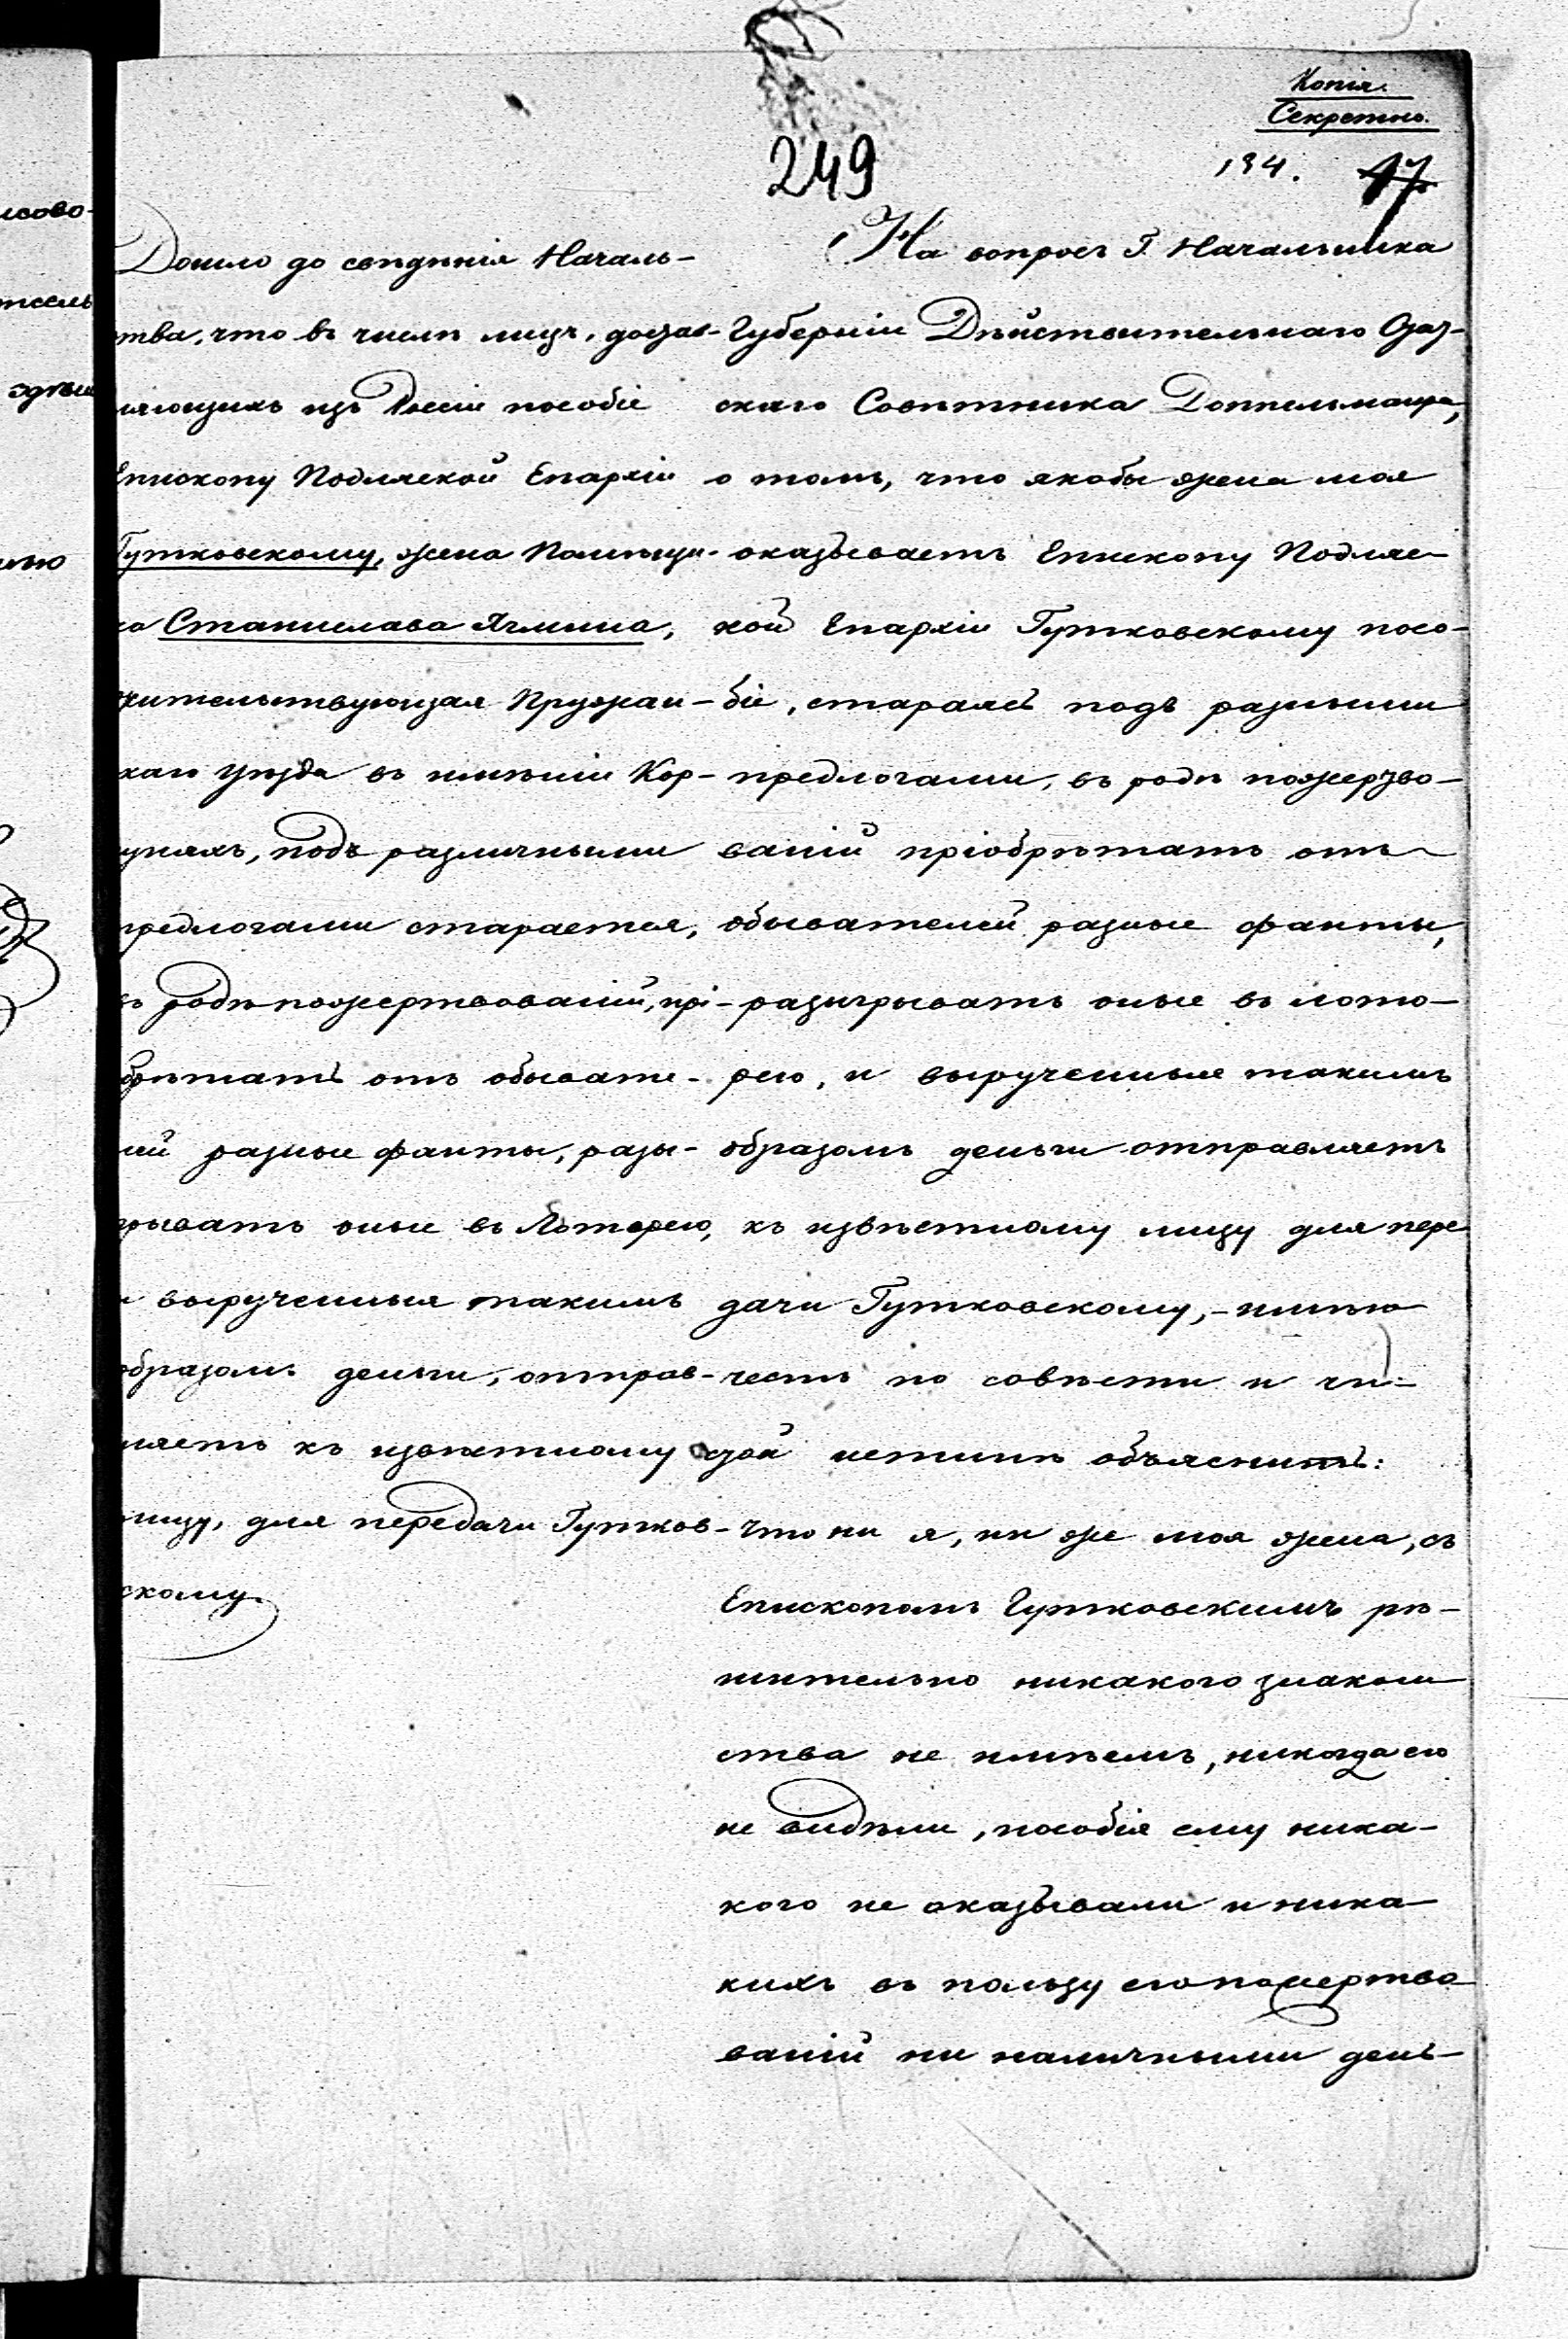 Копія.
Секретно.
249
134. 17
Дошло до свѣдѣнія Началь-
ства, что въ числѣ лицъ, достав-
ляющихъ изъ Россіи пособіе
Епископу Подляской Епархіи
Гутковскому, жена Помѣщи-
ка Станислава Ячмина,
жительствующая Пружан-
скаго уѣзда въ имѣніи Кор-
уняхъ, подъ различными
предлогами старается,
въ родѣ пожертвованій, прі-
обрѣтать отъ обывате-
лей разные фанты, разы-
грывать оные въ Лотерею,
и вырученныя такимъ
образомъ деньги, отправ-
ляетъ къ извѣстному
лицу, для передачи Гутков-
скому.
На вопросъ Г. Начальника
Губерніи Дѣйствительнаго Стат-
скаго Совѣтника Доппельмаира,
о томъ, что якобы жена моя
оказываетъ Епископу Подляс-
кой Епархіи Гутковскому посо-
біе, стараясь подъ разными
предлогами, въ родѣ пожертво-
ваній пріобрѣтать отъ
обывателей разные фанты,
разыгрывать оные въ лото-
рею, и вырученные такимъ
образомъ деньги отправляетъ
къ извѣстному лицу для пере
дачи Гутковскому, - имѣю
честь по совѣсти и чи-
стой истинѣ объяснить:
что ни я, ни же моя жена, съ
Епископомъ Гутковскимъ рѣ-
шительно никакого знаком
ства не имѣемъ, никогда его
не видѣли, пособія ему ника-
кого не оказывали и ника-
кихъ въ пользу его пожертво
ваній ни наличными день-